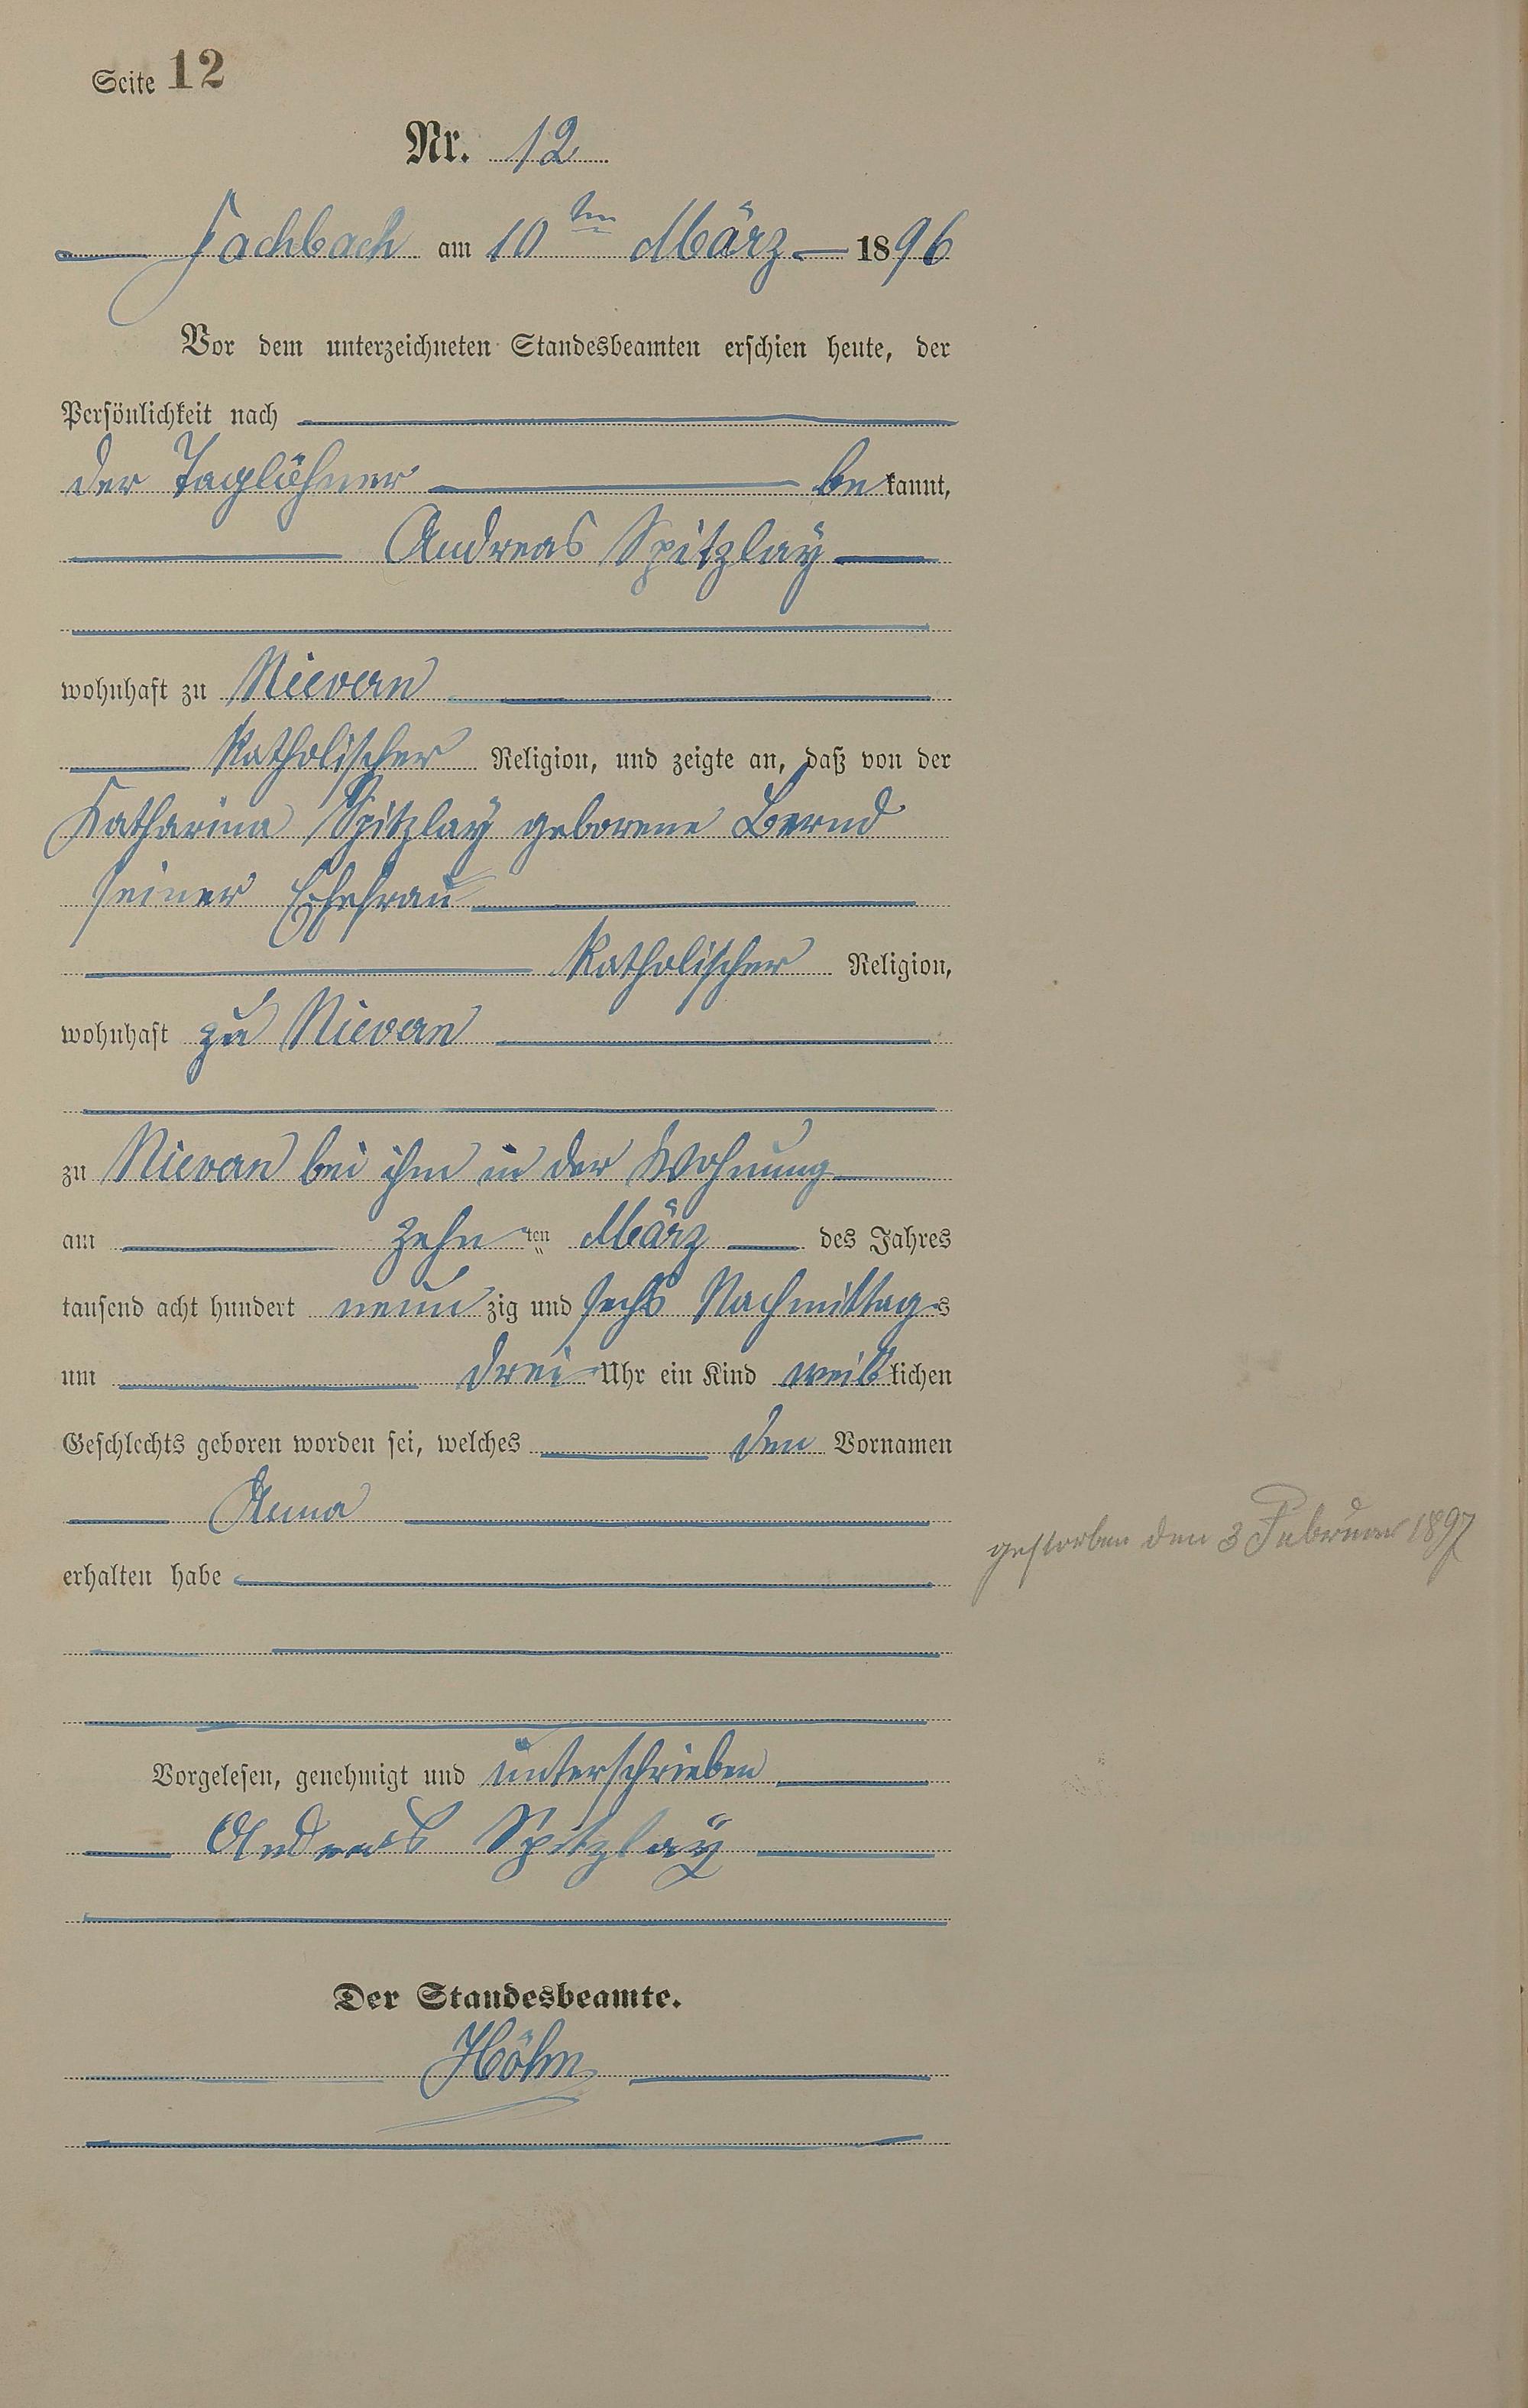 Seite 12
Nr. 12
Fachbach am 10ten März 1896
Vor dem unterzeichneten Standesbeamten erschien heute, der
Persönlichkeit nach
der Taglöhner bekannt,
Andreas Spitzlaÿ
wohnhaft zu Nievern
katholischer Religion, und zeigte an, daß von der
Katharina Spitzlaÿ geborene Bernd
seiner Ehefrau
katholischer Religion,
wohnhaft zu Nievern
zu Nievern bei ihm in der Wohnung
am zehn ten März des Jahres
tausend acht hundert neun zig und sechs Nachmittags
um drei Uhr ein Kind weiblichen
Geschlechts geboren worden sei, welches den Vornamen
Anna
gestorben den 3 Februar 1897
erhalten habe
Vorgelesen, genehmigt und unterschrieben
Andreas Spitzlaÿ
Der Standesbeamte.
Höhn